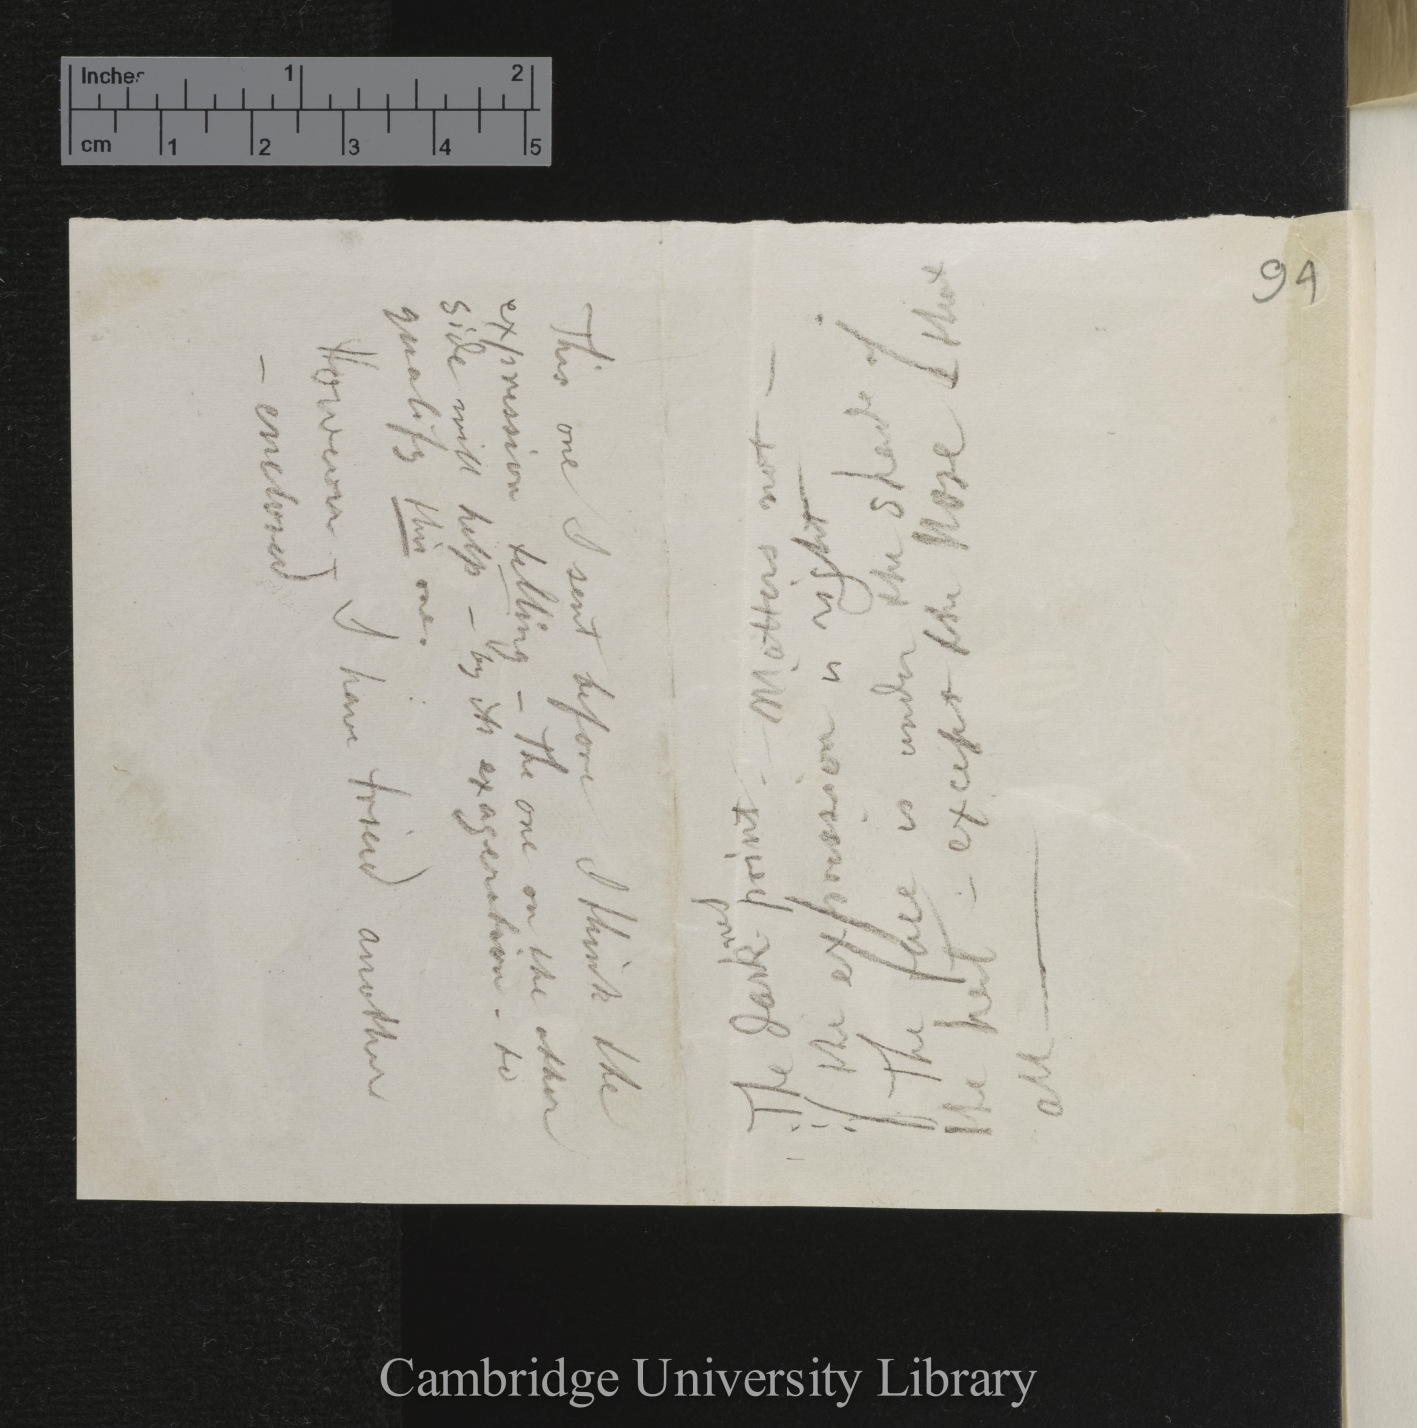 Inches 1 2
cm 1 2 3 4 5
94
This one I sent before I think the
expression telling – The one on the other
side will help – by its exageration – to
qualify this one.
However – I have tried another
– enclosed
The Jack print. – Matters not –
if the expression is right –
The face is under the shade of
the hat – except the Nose & that
all
Cambridge University Library